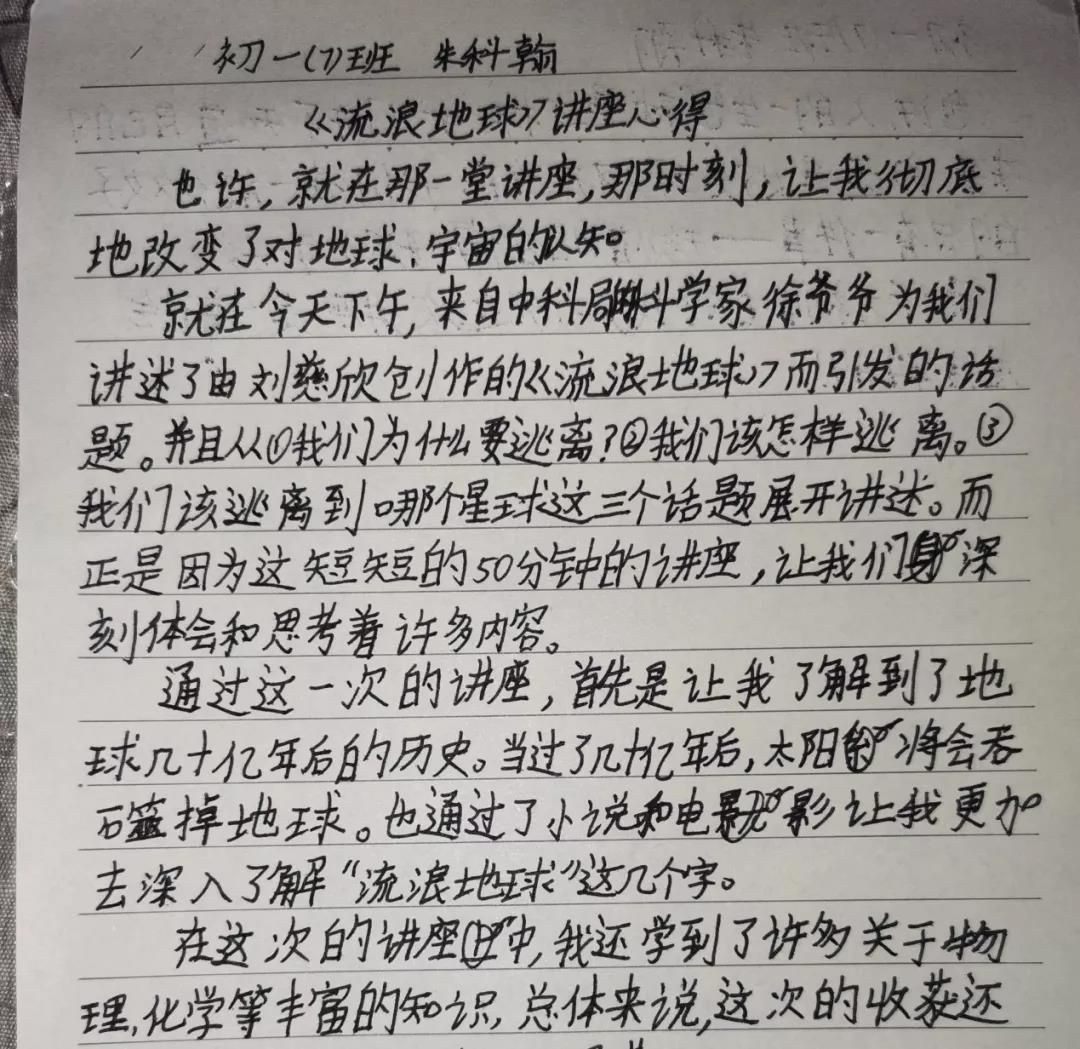 初一(7)班 朱科翰
《流浪地球》讲座心得
也许,就在那一堂讲座,那时刻,让我彻底
地改变了对地球、宇宙的认知。
就在今天下午,来自中科局的科学家徐爷爷为我们
讲述了由刘慈欣创作的《流浪地球》而引发的话
题。并且从①我们为什么要逃离?②我们该怎样逃离。③
我们该逃离到哪个星球这三个话题展开讲述。而
正是因为这短短的50分钟的讲座,让我们深
刻体会和思考着许多内容。
通过这一次的讲座,首先是让我了解到了地
球几十亿年后的历史。当过了几十亿年后,太阳将会吞
掉地球。也通过了小说和电影让我更加
去深入了解“流浪地球”这几个字。
在这次的讲座中,我还学到了许多关于物
理,化学等丰富的知识,总体来说,这次的收获还